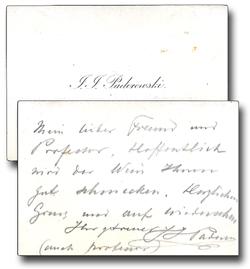 I. J. Paderewski.
Mein lieber Freund und
Professor. Hoffentlich
wird der Wein Ihnen
gut schmecken. Herzlichen
Gruss und auf wiedersehen
Ihr
(auch professor)